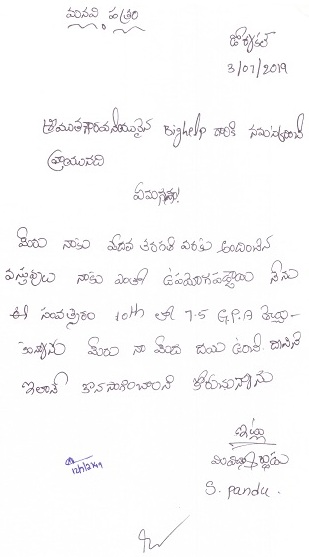 మనవి పత్రం
3/07/2019
శ్రీయుతగౌరవనీయులైన Bighelp వారికి నమస్కరించి
వ్రాయునది
ఏమనగా!
మీరు నాకు పదవ తరగతి వరకు అందించిన
వస్తువులు నాకు ఎంతో ఉపయోగపడ్డాయి నేను
ఈ సంవత్సరం 10th లో 7.5 G.P.A తెచ్చు-
కున్నాను మీరు నా మీద దయ ఉంచి దానిని
ఇలానే కొనసాగించాలని కోరుచున్నాను
ఇట్లు
S. pandu.